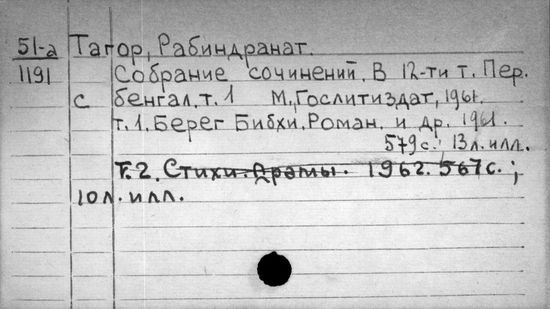 51-а Тагор, Рабиндранат.
1191 Собрание сочинений. В 12-ти т. Пер.
с бенгал. т. 1 М., Гослитиздат, 1961.
т. 1. Берег Бибхи. Роман. и др. 1961.
579 с.; 13 л. илл.
т. 2. Стихи. Драмы. 1962. 567 с.;
10 л. илл.